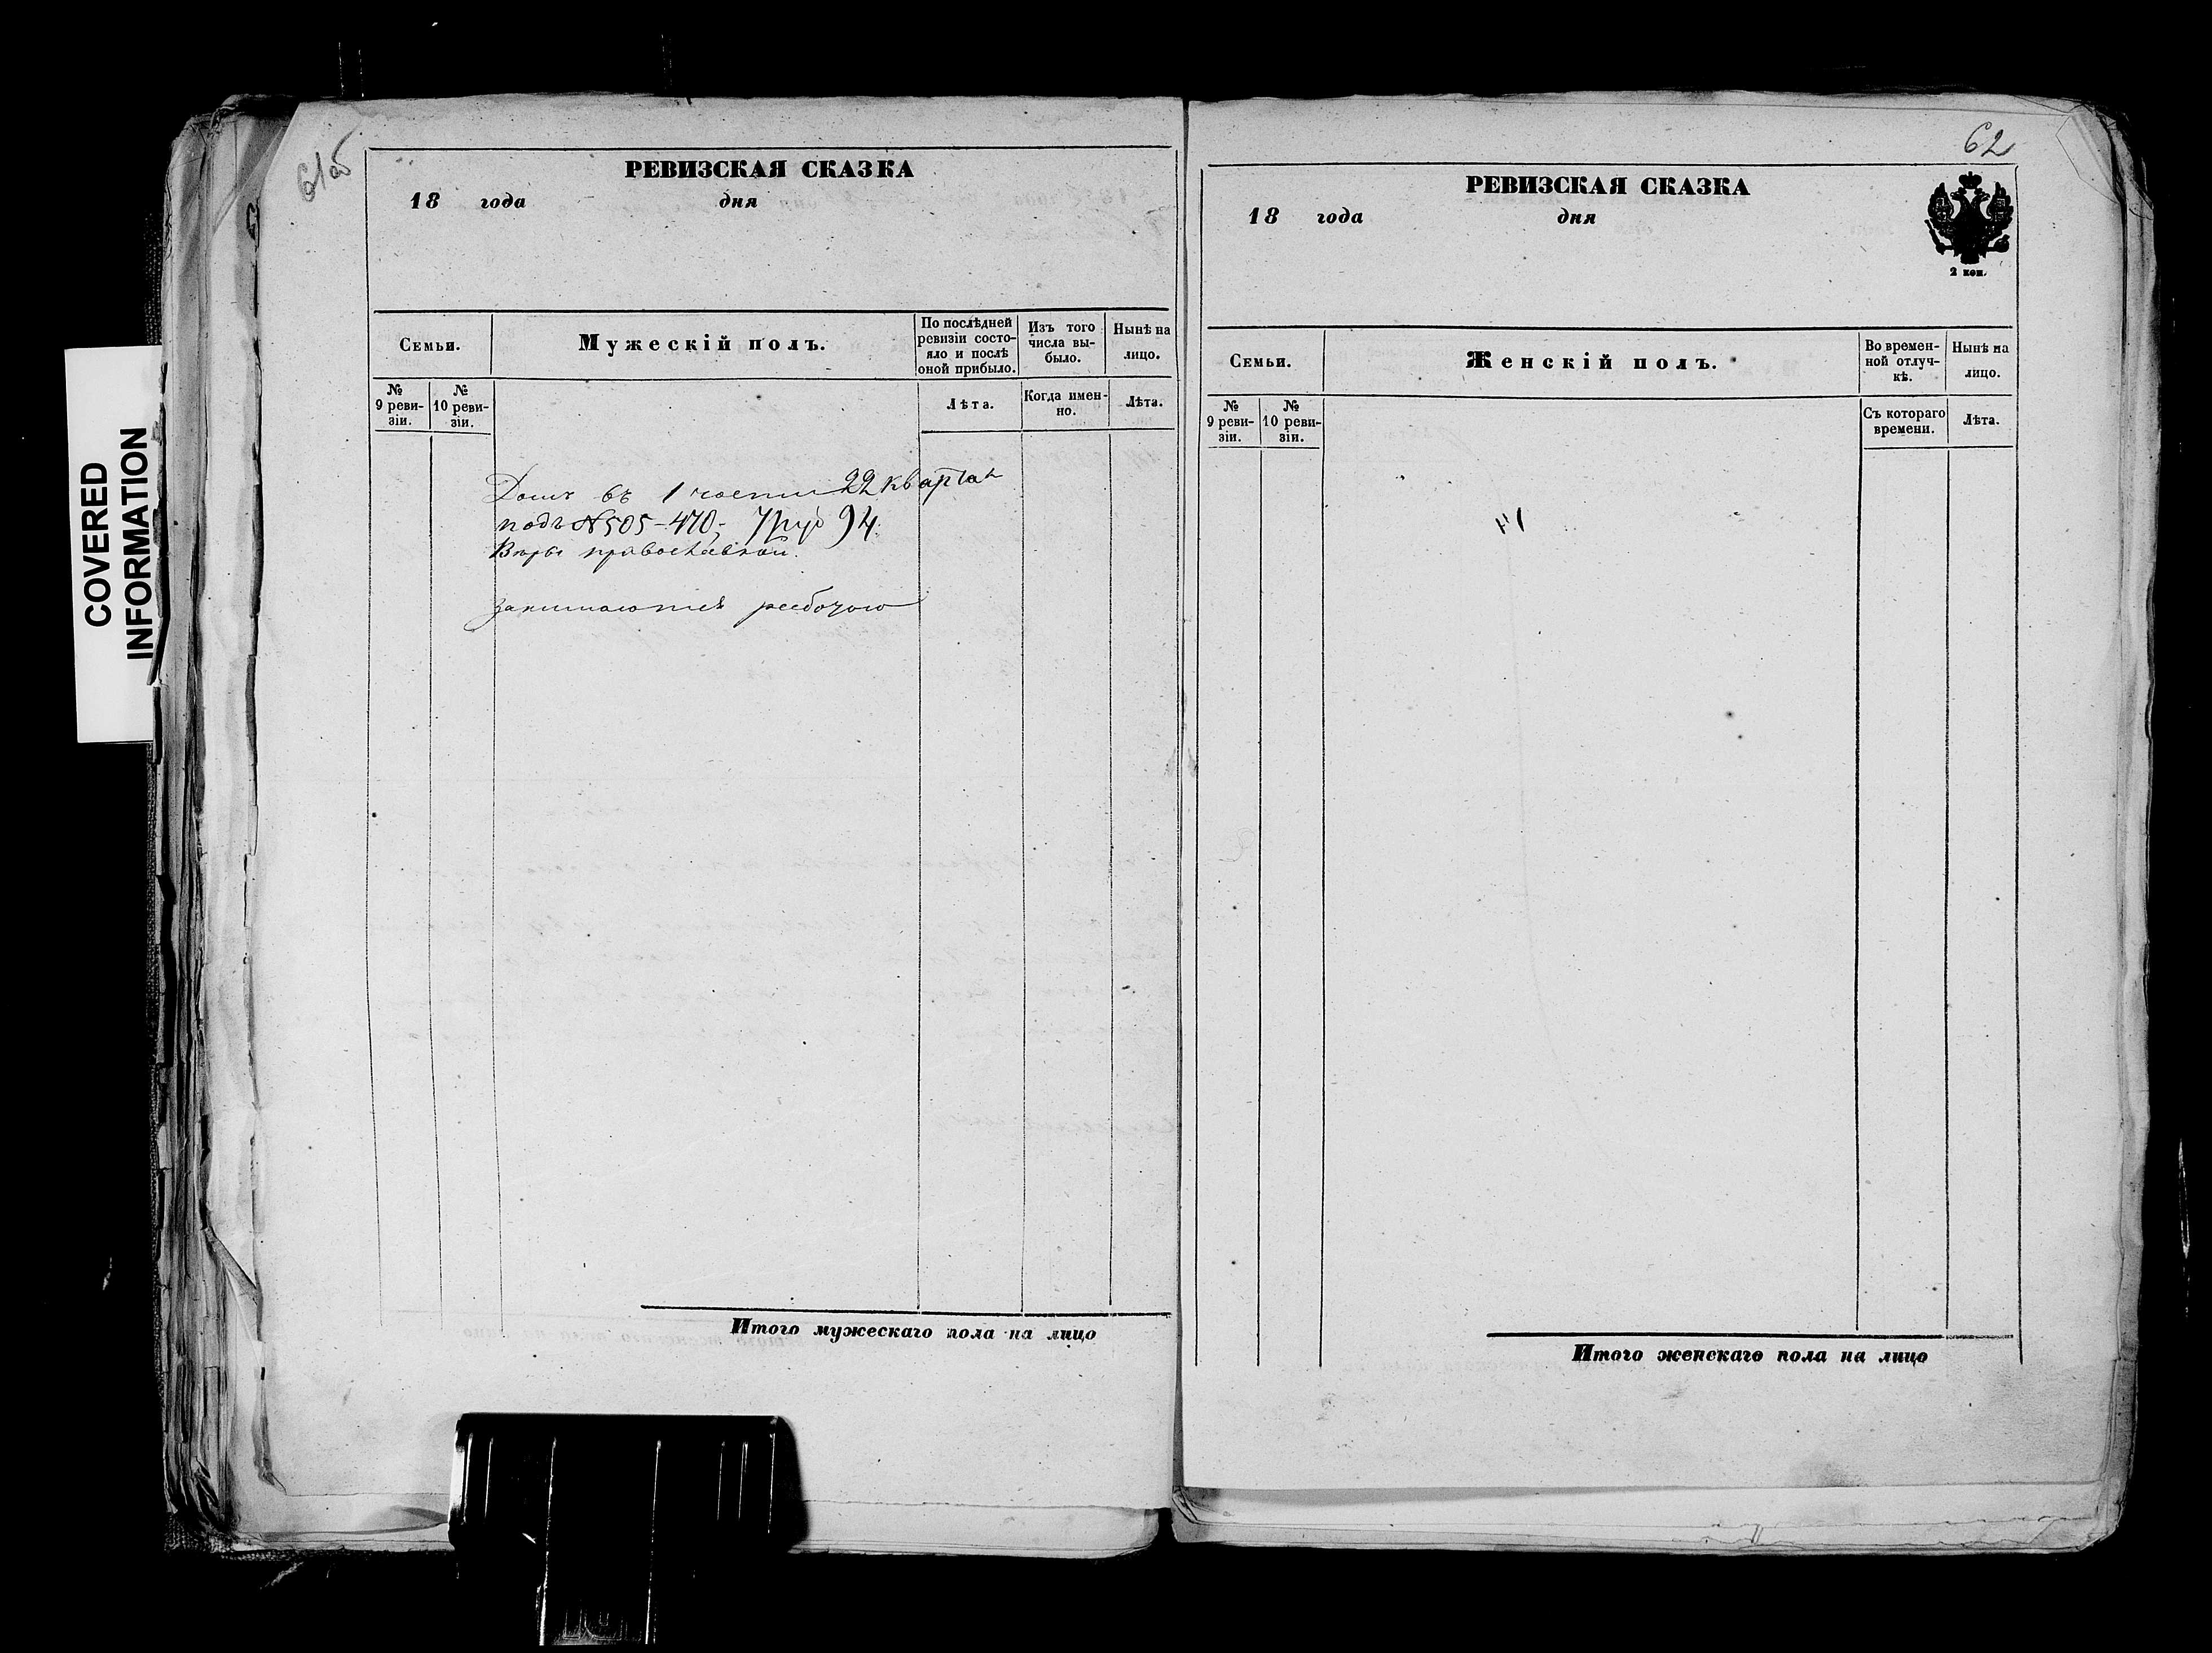 COVERED
INFORMATION
61об
РЕВИЗСКАЯ СКАЗКА
18 года дня
Семьи.
Мужескій полъ.
По послѣдней ревизіи состояло и послѣ оной прибыло.
Изъ того числа выбыло.
Нынѣ на лицо.
№ 9 ревизіи.
№ 10 ревизіи.
Лѣта.
Когда именно.
Лѣта.
Домъ въ 1 части 22 квартал
подъ №505-470; 7 руб 94.
Вѣры православной.
занимаются работою
Итого мужескаго пола на лицо
62
РЕВИЗСКАЯ СКАЗКА
18 года дня
2 коп.
Семьи.
Женскій полъ.
Во временной отлучкѣ.
Нынѣ на лицо.
№ 9 ревизіи.
№ 10 ревизіи.
Съ котораго времени.
Лѣта.
Итого женскаго пола на лицо